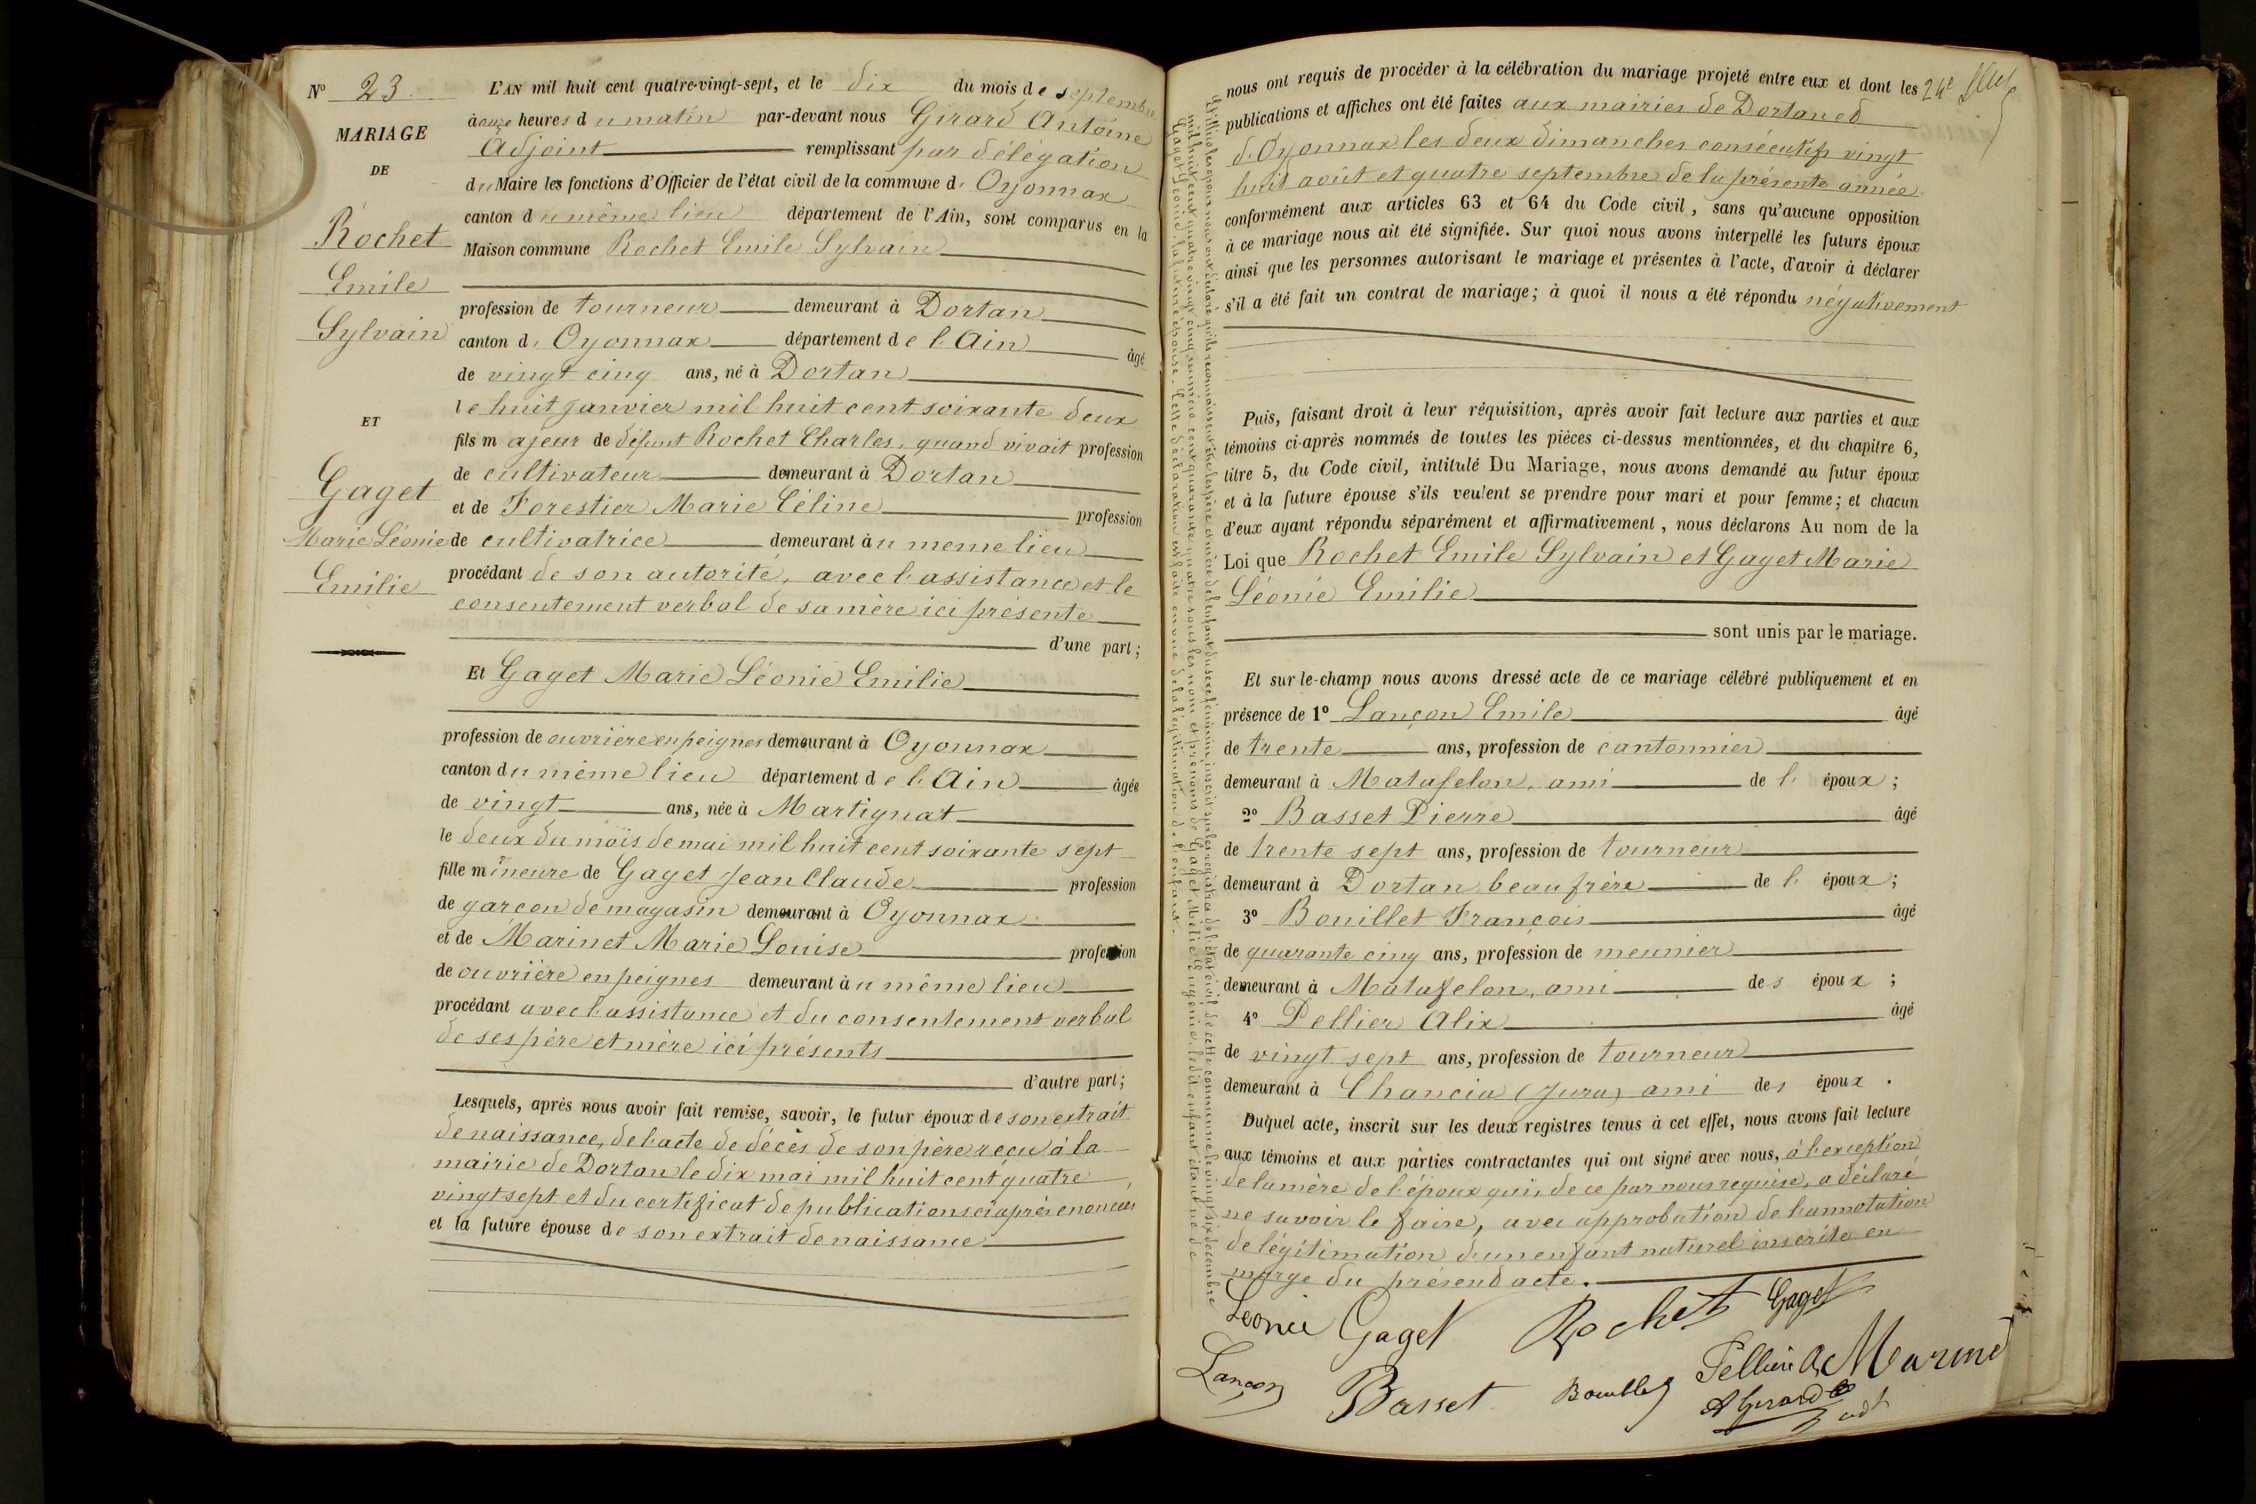 Nº 23
MARIAGE
DE
Rochet
Emile
Sylvain
ET
Gaget
Marie Léonie
Emilie
L'AN mil huit cent quatre-vingt-sept, et le dix du mois de septembre
à onze heures du matin par-devant nous Girard Antoine
Adjoint remplissant par délégation
du Maire les fonctions d'Officier de l'état civil de la commune d' Oyonnax
canton du même lieu département de l'Ain, sont comparus en la
Maison commune Rochet Emile Sylvain
profession de tourneur demeurant à Dortan
canton d' Oyonnax département de l'Ain âgé
de vingt cinq ans, né à Dortan
le huit janvier mil huit cent soixante deux
fils majeur de défunt Rochet Charles, quand vivait profession
de cultivateur demeurant à Dortan
et de Forestier Marie Céline profession
de cultivatrice demeurant au meme lieu
procédant de son autorité, avec l'assistance et le
consentement verbal de sa mère ici présente
d'une part;
Et Gaget Marie Léonie Emilie
profession de ouvrière en peignes demeurant à Oyonnax
canton du même lieu département de l'Ain âgée
de vingt ans, née à Martignat
le deux du mois de mai mil huit cent soixante sept
fille mineure de Gaget Jean Claude profession
de garcon de magasin demeurant à Oyonnax
et de Marinet Marie Louise profession
de ouvrière en peignes demeurant au même lieu
procédant avec l'assistance et du consentement verbal
de ses père et mère ici présents
d'autre part;
Lesquels, après nous avoir fait remise, savoir, le futur époux de son extrait
de naissance, de l'acte de décès de son père reçu à la
mairie de Dortan le dix mai mil huit cent quatre
vingt sept et du certificat de publications ci après énoncées
et la future épouse de son extrait de naissance
nous ont requis de procéder à la célébration du mariage projeté entre eux et dont les
publications et affiches ont été faites aux mairies de Dortan et
d'Oyonnax les deux dimanches consécutifs vingt
huit août et quatre septembre de la présente année
conformément aux articles 63 et 64 du Code civil, sans qu'aucune opposition
à ce mariage nous ait été signifiée. Sur quoi nous avons interpellé les futurs époux
ainsi que les personnes autorisant le mariage et présentes à l'acte, d'avoir à déclarer
s'il a été fait un contrat de mariage; à quoi il nous a été répondu négativement
Puis, faisant droit à leur réquisition, après avoir fait lecture aux parties et aux
témoins ci-après nommés de toutes les pièces ci-dessus mentionnées, et du chapitre 6,
titre 5, du Code civil, intitulé Du Mariage, nous avons demandé au futur époux
et à la future épouse s'ils veulent se prendre pour mari et pour femme; et chacun
d'eux ayant répondu séparément et affirmativement, nous déclarons Au nom de la
Loi que Rochet Emile Sylvain et Gaget Marie
Léonie Emilie
sont unis par le mariage.
Et sur-le-champ nous avons dressé acte de ce mariage célébré publiquement et en
présence de 1º Lançon Emile âgé
de trente ans, profession de cantonnier
demeurant à Matafelon, ami de l' époux;
2º Basset Pierre âgé
de trente sept ans, profession de tourneur
demeurant à Dortan beau frère de l' époux;
3º Bouillet François âgé
de quarante cinq ans, profession de meunier
demeurant à Matafelon, ami des époux;
4º Pellier Alix âgé
de vingt sept ans, profession de tourneur
demeurant à Chancia (Jura) ami des époux.
Duquel acte, inscrit sur les deux registres tenus à cet effet, nous avons fait lecture
aux témoins et aux parties contractantes qui ont signé avec nous, à l'exception
de la mère de l'époux qui, de ce par nous requise, a déclaré
ne savoir le faire, avec approbation de l'annotation
de légitimation d'un enfant naturel inscrite en
marge du présent acte.
Léonie Gaget Rochet Gaget
Lançon Basset Bouillet Pellier A Marinet
A Girard adt